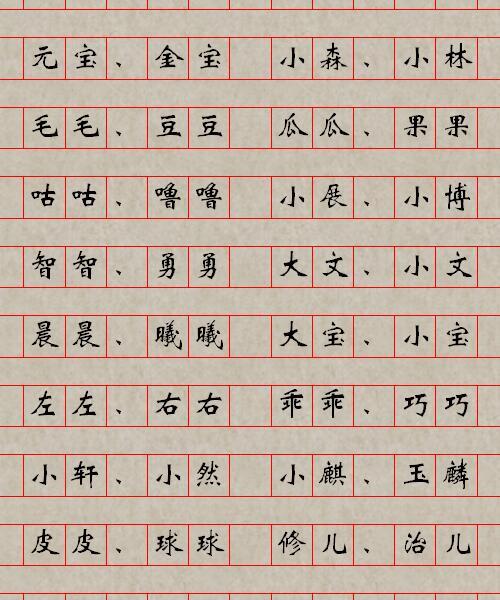 元宝、金宝 小森、小林
毛毛、豆豆 瓜瓜、果果
咕咕、噜噜 小展、小博
智智、勇勇 大文、小文
晨晨、曦曦 大宝、小宝
左左、右右 乖乖、巧巧
小轩、小然 小麒、玉麟
皮皮、球球 修儿、治儿